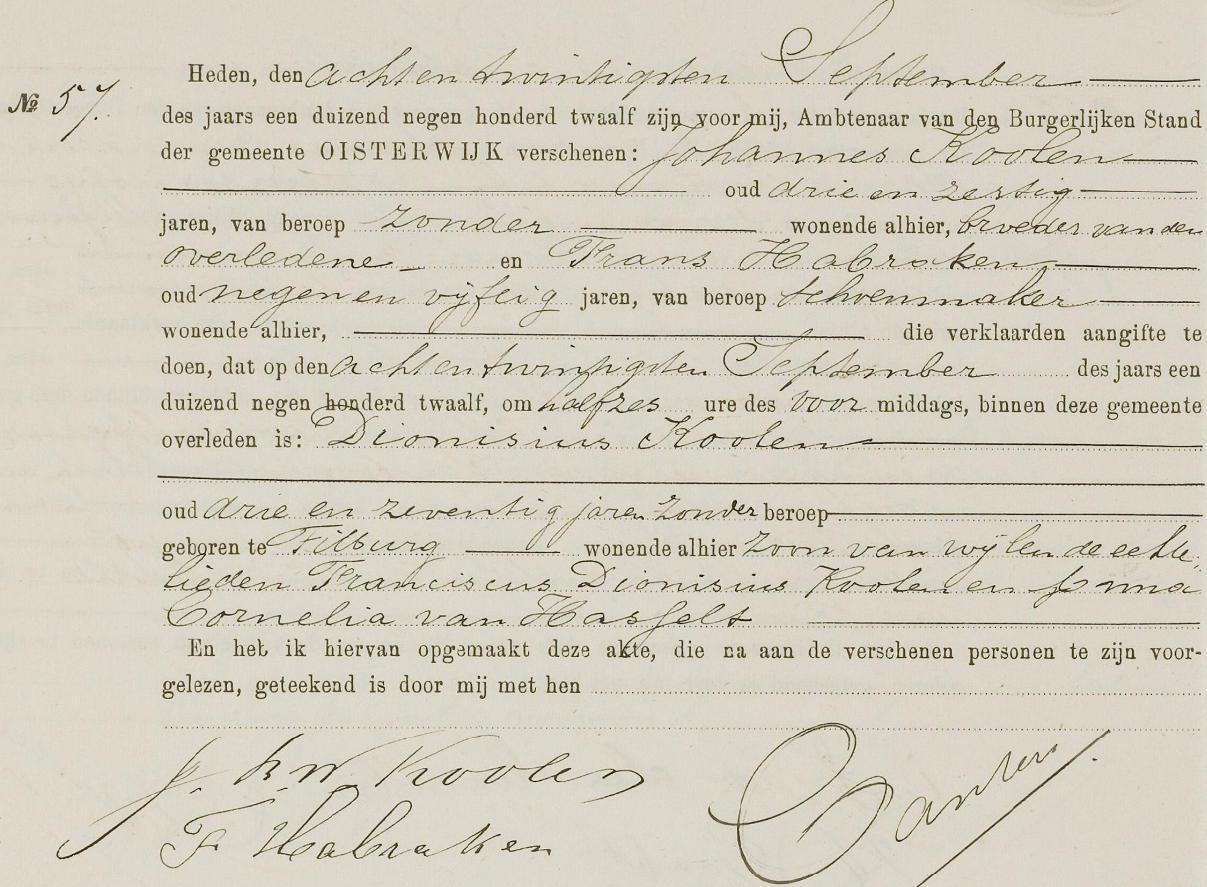 Heden, den achtentwintigsten September
№ 57.
des jaars een duizend negen honderd twaalf zijn voor mij, Ambtenaar van den Burgerlijken Stand
der gemeente OISTERWIJK verschenen: Johannes Koolen
oud drie en zestig
jaren, van beroep zonder wonende alhier, broeder van den
overledene en Frans Habraken
oud negen en vijftig jaren, van beroep schoenmaker
wonende alhier, die verklaarden aangifte te
doen, dat op den achtentwintigsten September des jaars een
duizend negen honderd twaalf, om halfzes ure des voor middags, binnen deze gemeente
overleden is: Dionisius Koolen
oud drie en zeventig jaren zonder beroep
geboren te Tilburg wonende alhier zoon van wijlen de echte-
lieden Franciscus Dionisius Koolen en
Cornelia van Hasselt
En heb ik hiervan opgemaakt deze akte, die na aan de verschenen personen te zijn voor-
gelezen, geteekend is door mij met hen
Koolen
F Habraken